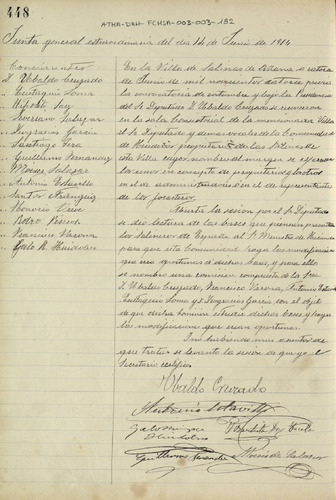 448
ATHA-DAH-FCHSA-003-003-192
Junta general extraordinaria del dia 14 de Junio de 1914
Concurrentes
D. Ubaldo Cruzado
" Eustiquio Soma
" Hipolito
" Severiano Salazar
" Diogracias Garcia
" Santiago
" Guillermo Fernandez
" Moises Salazar
" Antonio
" Santos
" Honorio
" Pedro
" Francisco Varona
" Galo M. Guinddos
En la Villa de Salinas de Añana a catorce
de Junio de mil novecientos catorce previa
la convocatoria de costumbre y bajo la Presidencia
del Sr Diputado D. Ubaldo Cruzado se reunieron
en la sala Consistorial de la mencionada Villa
el Sr Diputado y demas vocales de la Comunidad
de Herederos propietarios de las Salinas de
esta Villa cuyos nombres al margen se expresan
los unos en concepto de propietarios y los otros
en el de administradores o en el de representantes
de los forasteros.
Abierta la sesion por el Sr Diputado
se dio lectura de las bases que piensan presentar
los Salineros de España al Sr Ministro de Hacienda
para que esta Comunidad haga las modificaciones
que crea oportunas a dichas bases, y para ello
se nombro una comision compuesta de los Sres
D. Ubaldo Cruzado, Francisco Varona, Antonio
Eustiquio Soma y Diogracias Garcia con el objeto
de que dichos hombres estudien dichas bases y hagan
las modificaciones que crean oportunas.
Y no habiendo mas asuntos de
que tratar se levantó la sesion de que yo el
Secretario certifico.
Ubaldo Cruzado
Antonio
Galo M.
Guillermo Fernandez
Moises de Salazar